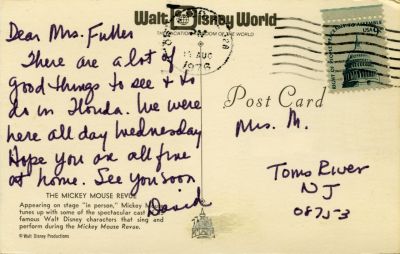 Walt Disney World
THE VACATION KINGDOM OF THE WORLD
Dear Mrs. Fuller
There are a lot of
good things to see + to
do in Florida. We were
here all day Wednesday
Hope you are all fine
at home. See you soon
David
AUG
1976
Post Card
Mrs. M.
Toms River
NJ
08753
THE MICKEY MOUSE REVUE
Appearing on stage "in person," Mickey Mouse
tunes up with some of the spectacular cast of
famous Walt Disney characters that sing and
perform during the Mickey Mouse Revue.
© Walt Disney Productions